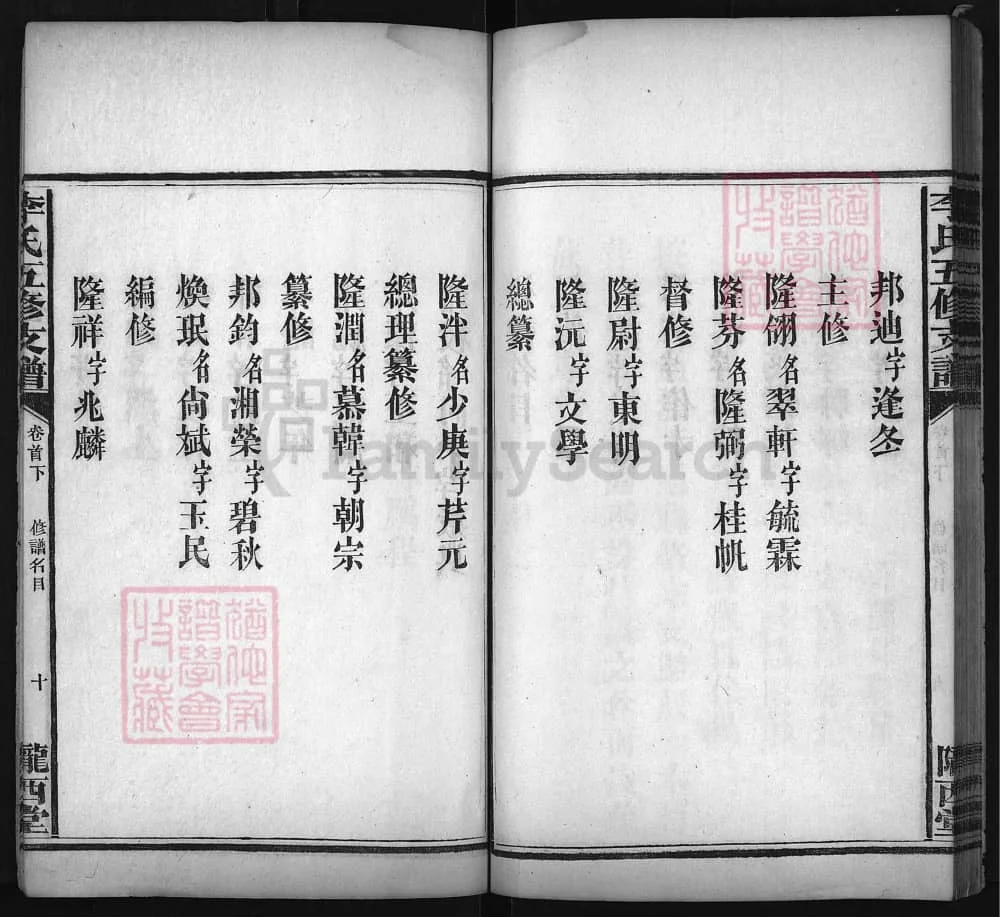 李氏五修支譜
卷首下
隴西堂
邦迪字逢冬
主修
隆翎名翠軒字毓霖
隆芬名隆弼字桂帆
督修
隆尉字東明
隆沅字文學
總纂
隆泮名少庚字芹元
總理纂修
隆澗名慕韓字朝宗
纂修
邦鈞名湘榮字碧秋
煥珉名尙斌字玉民
編修
隆祥字兆麟
李氏五修支譜
卷首下
修譜名目
十
隴西堂
FamilySearch